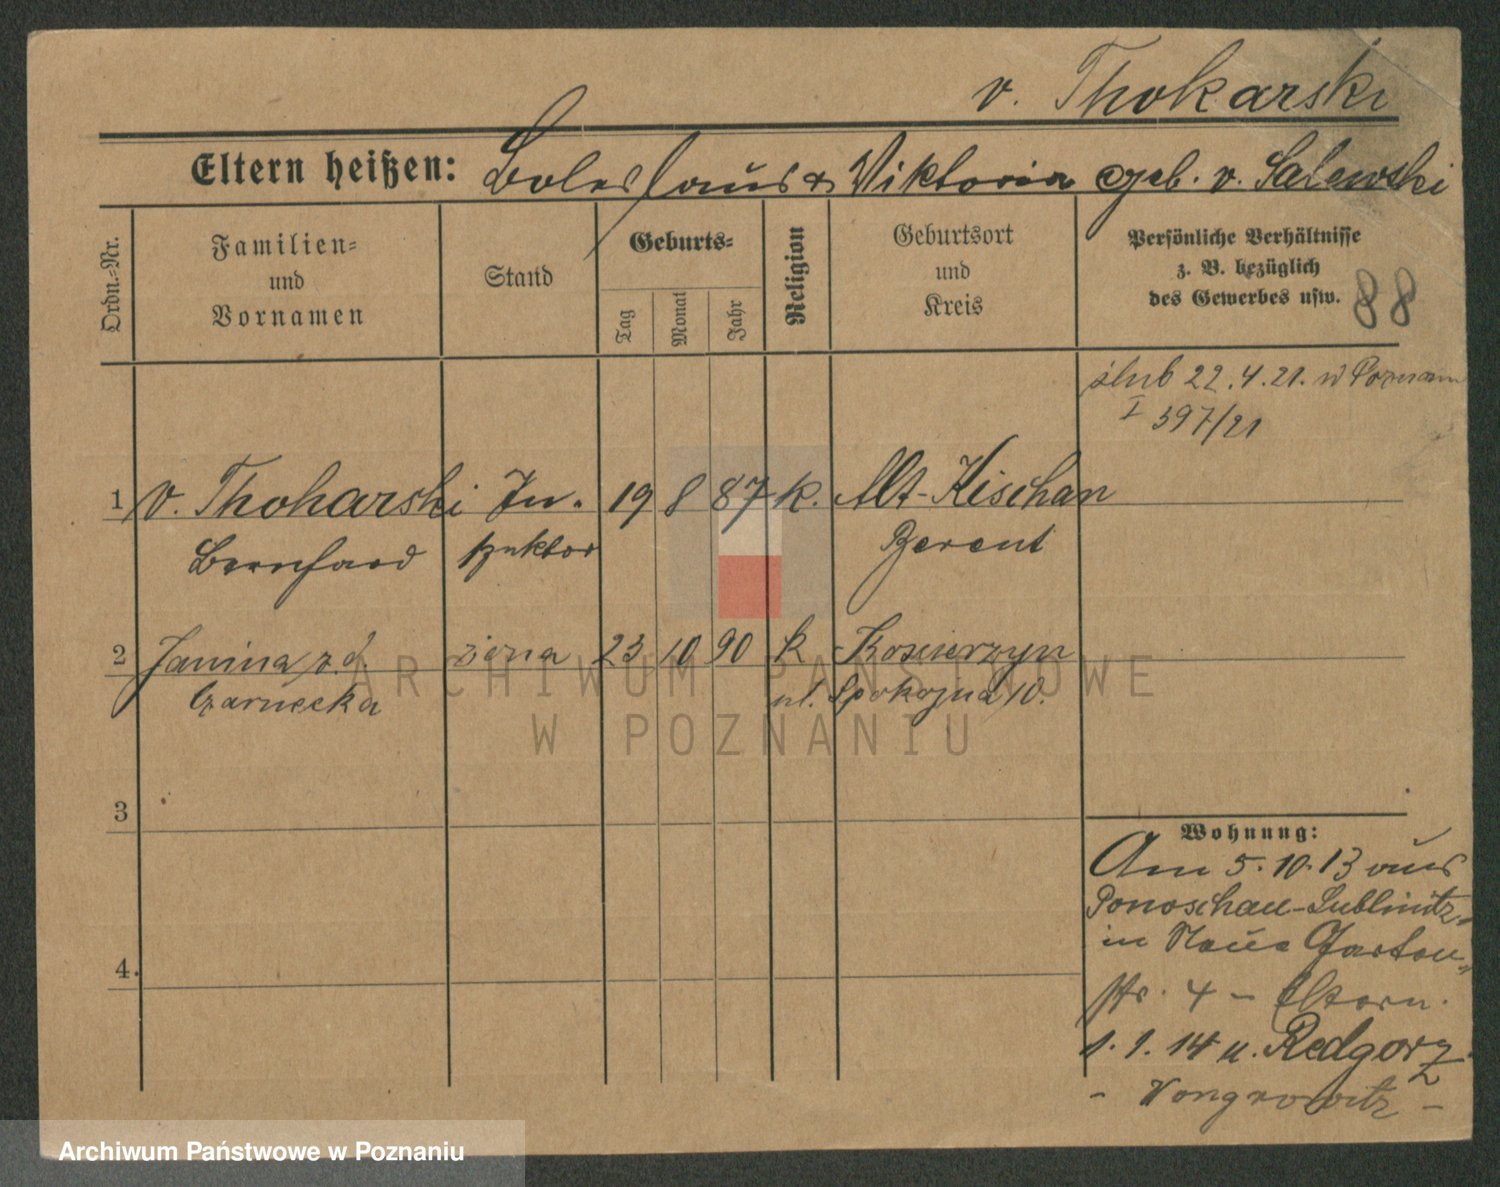 v. Thokarski
Eltern heißen: Boleslaus & Viktoria geb. v. Salewski
Ordn.-Nr.
Familien-
und
Vornamen
Stand
Geburts-
Tag
Monat
Jahr
Religion
Geburtsort
und
Kreis
Persönliche Verhältnisse
z. B. bezüglich
des Gewerbes usw.
88
ślub 22.4.21. w Poznaniu
I 397/21
1 v. Thokarski In- 19 8 87 k. Alt-Kischau
Bernhard spektor Berent
2 Janina z d. żona 23 10 90 k Koscierzyn
Czarnecka ul. Spokojna 10.
3
4.
Wohnung:
Am 5.10.13 aus
Ponoschau-Lublinitz-
in Neue Garten-
str. 4 - Eltern.
1.1.14 n. Redgosz
- Wongrowitz -
ARCHIWUM PAŃSTWOWE
W POZNANIU
Archiwum Państwowe w Poznaniu